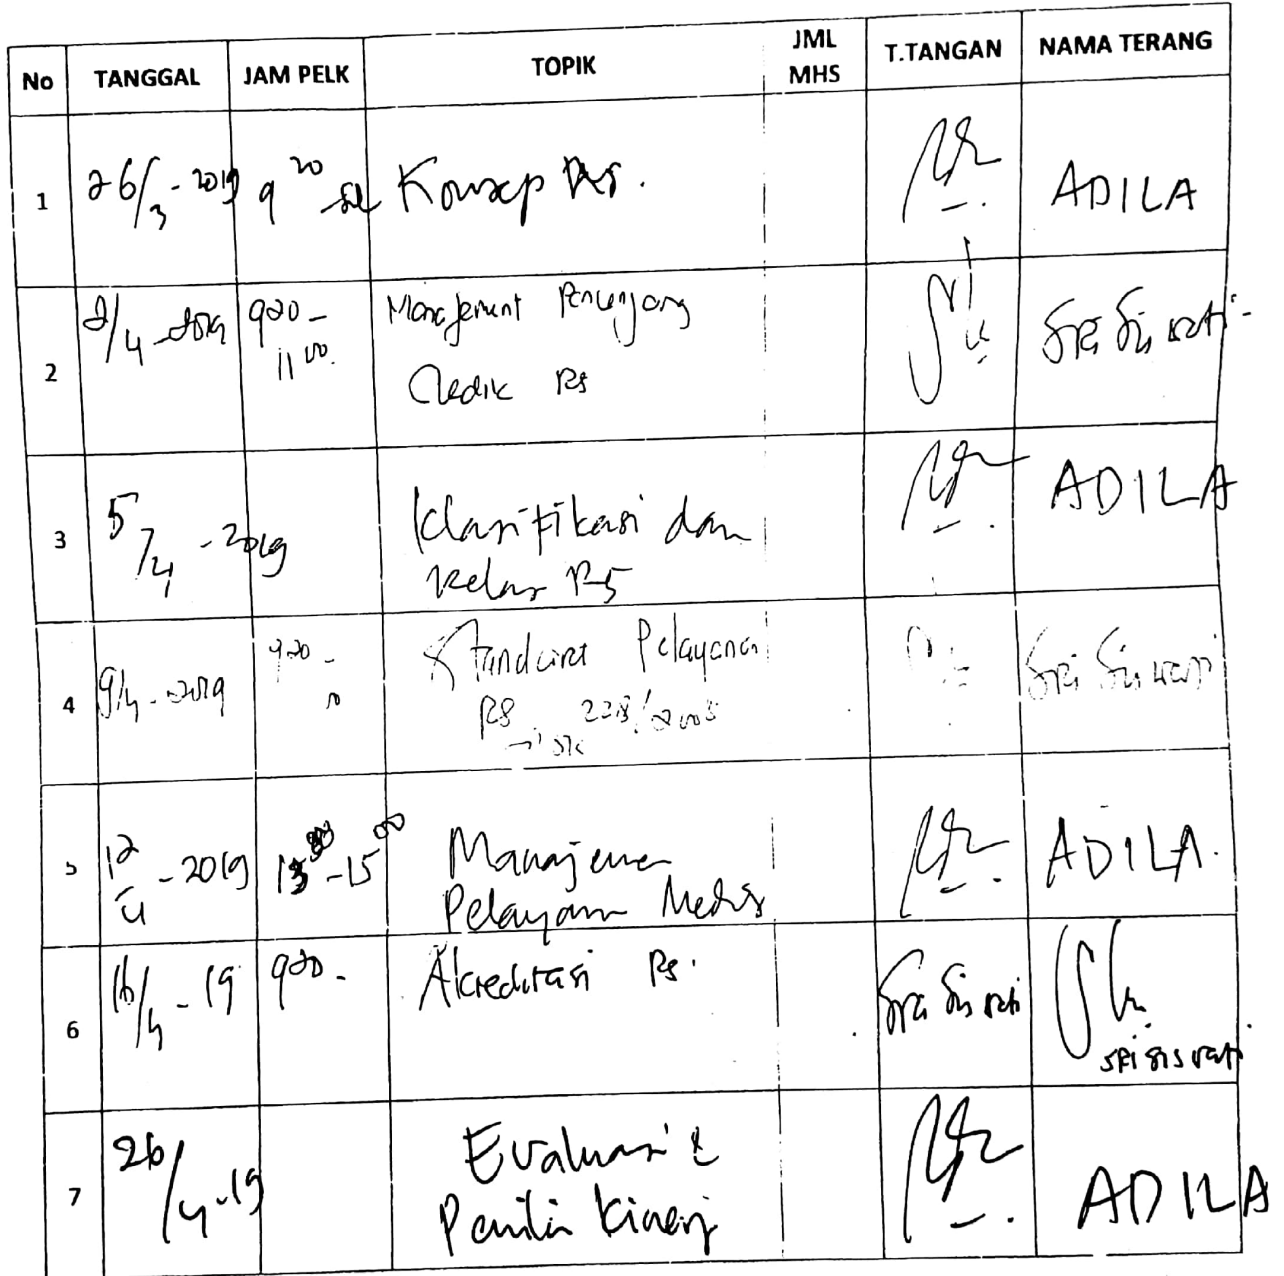 No TANGGAL JAM PELK TOPIK JML MHS T.TANGAN NAMA TERANG
1 26/3-2019 9 20 Konsep RS. ADILA
2 2/4-2019 920 - 11 00. Manajement Penunjang Medik RS Sri Siswati
3 5/4-2019 Klasifikasi dan Kelas RS ADILA
4 9/4-2019 920 - Standard Pelayanan RS 228/2005 Sri Siswati
5 12/4-2019 -15 00 Manajemen Pelayanan Medis ADILA.
6 16/4-19 920 - Akreditasi RS. Sri Siswati Sri Siswati
7 26/4-19 Evaluasi & Kinerj ADILA